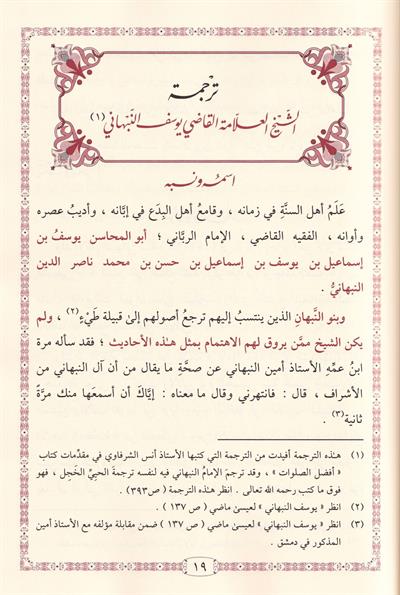 ترجمة
الشيخ العلامة القاضي يوسف النبهاني (١)
اسمه ونسبه
عَلَمُ أهل السنَّةِ في زمانه ، وقامعُ أهل البِدَع في إبَّانه ، وأديبُ عصره
وأوانه ، الفقيه القاضي ، الإمام الربَّاني ؛ أبو المحاسن يوسفُ بن
إسماعيل بن يوسف بن إسماعيل بن حسن بن محمد ناصر الدين
النبهانيُّ .
وبنو النَّبهانِ الذين ينتسبُ إليهم ترجعُ أصولهم إلى قبيلة طَيْءٍ (٢) ، ولم
يكن الشيخ ممَّن يروق لهم الاهتمام بمثل هذه الأحاديث ؛ فقد سأله مرة
ابنُ عمِّهِ الأستاذ أمين النبهاني عن صحَّةِ ما يقال من أن آل النبهاني من
الأشراف ، قال : فانتهرني وقال ما معناه : إيَّاكَ أن أسمعَها منك مرَّةً
ثانية (٣) .
(١) هذه الترجمة أفيدت من الترجمة التي كتبها الأستاذ أنس الشرفاوي في مقدِّمات كتاب
« أفضل الصلوات » ، وقد ترجم الإمامُ النبهاني فيه لنفسه ترجمةَ الحييِّ الخَجِل ، فهو
فوق ما كتب رحمه الله تعالى . انظر هذه الترجمة ( ص٣٩٣ ) .
(٢) انظر « يوسف النبهاني » لعيسىٰ ماضي ( ص ١٣٧ ) .
(٣) انظر « يوسف النبهاني » لعيسىٰ ماضي ( ص ١٣٧ ) ضمن مقابلة مؤلفه مع الأستاذ أمين
المذكور في دمشق .
١٩